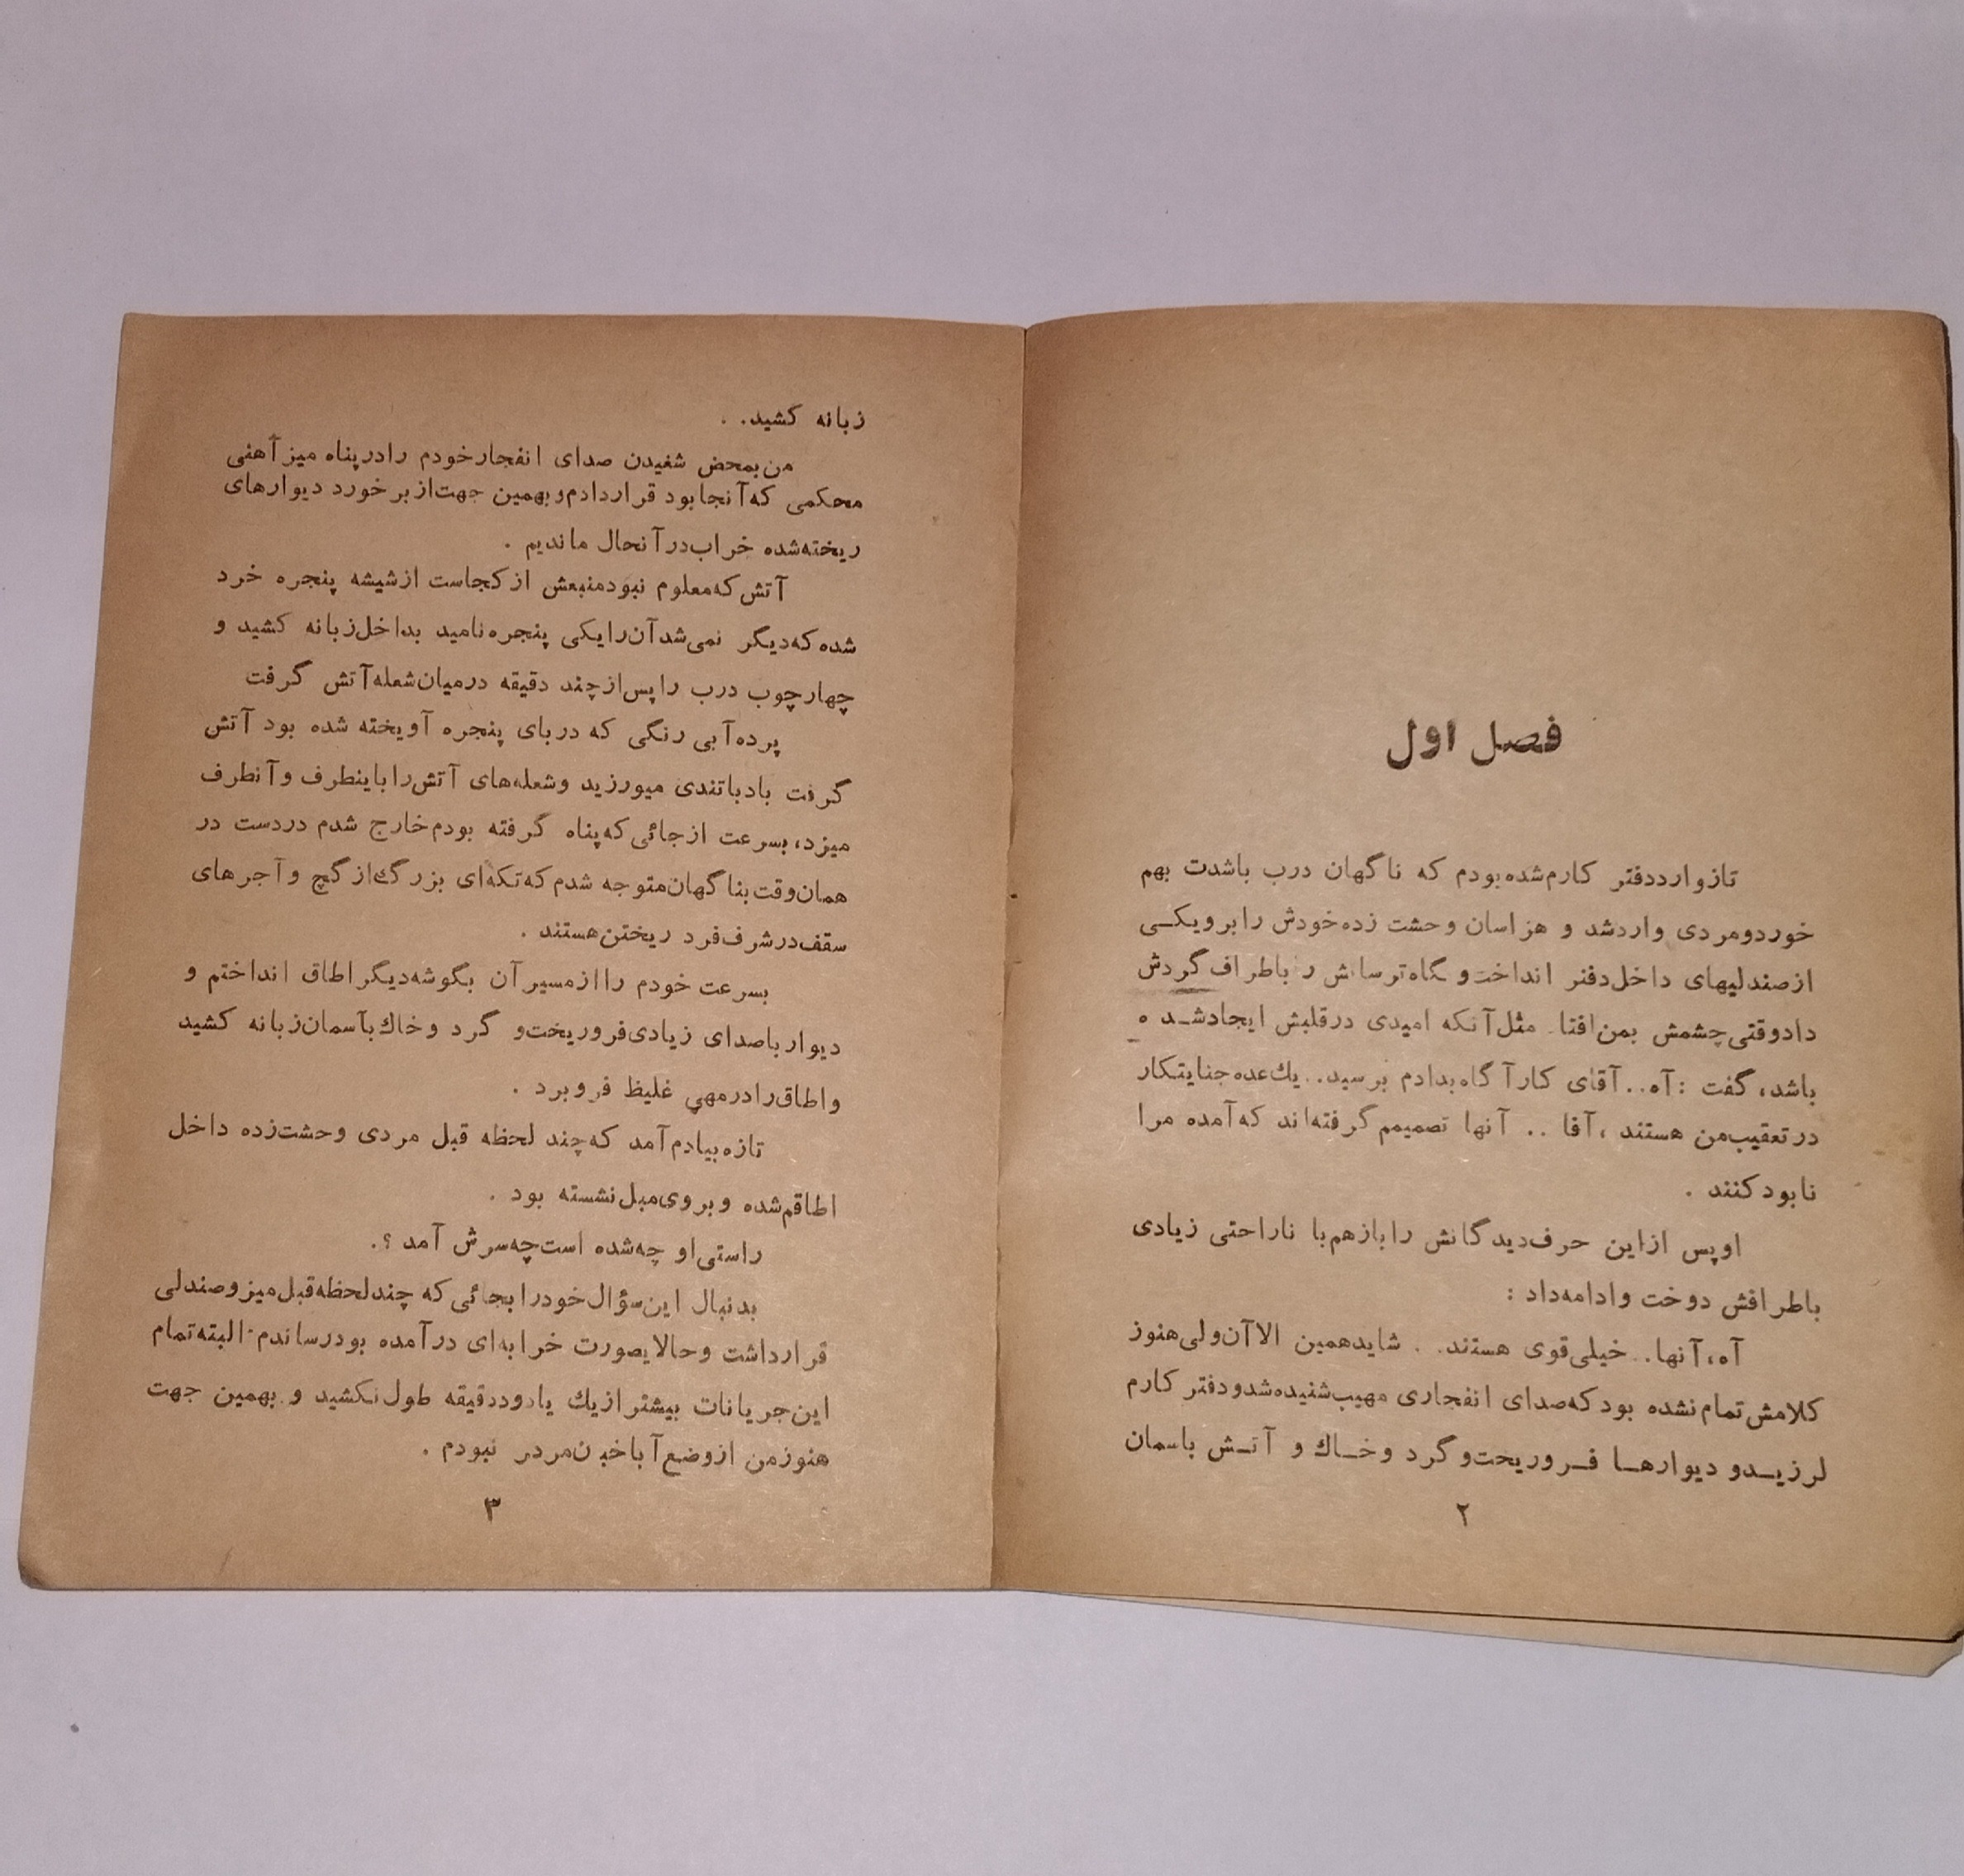 فصل اول
تازه وارد دفتر کارم شده بودم که ناگهان درب باشدت بهم
خورد و مردی وارد شد و هراسان وحشت زده خودش را برویکی
از صندلیهای داخل دفتر انداخت و نگاه ترسانش را باطراف گردش
داد وقتی چشمش بمن افتاد مثل آنکه امیدی در قلبش ایجاد شده
باشد، گفت : آه.. آقای کارآگاه بدادم برسید.. یك عده جنایتکار
در تعقیب من هستند ، آقا .. آنها تصمیم گرفته اند که آمده مرا
نابود کنند .
او پس از این حرف دیدگانش را باز هم با ناراحتی زیادی
باطرافش دوخت و ادامه داد :
آه، آنها.. خیلی قوی هستند. . شاید همین الاآن ولی هنوز
کلامش تمام نشده بود که صدای انفجاری مهیب شنیده شد و دفتر کارم
لرزیــد و دیوارهــا فــرو ریخت و گرد و خــاك و آتــش باسمان
۲
زبانه کشید. .
من بمحض شنیدن صدای انفجار خودم را در پناه میز آهنی
محکمی که آنجا بود قرار دادم و بهمین جهت از برخورد دیوارهای
ریخته شده خراب در آنحال ماندیم .
آتش که معلوم نبود منبعش از کجاست از شیشه پنجره خرد
شده که دیگر نمی شد آن را یکی پنجره نامید بداخل زبانه کشید و
چهار چوب درب را پس از چند دقیقه در میان شعله آتش گرفت
پرده آبی رنگی که در بای پنجره آویخته شده بود آتش
گرفت باد باتندی میورزید و شعله های آتش را باینطرف و آنطرف
میزد، بسرعت از جائی که پناه گرفته بودم خارج شدم در دست در
همان وقت بناگهان متوجه شدم که تکه ای بزرگ از گچ و آجرهای
سقف در شرف فرد ریختن هستند .
بسرعت خودم را از مسیر آن بگوشه دیگر اطاق انداختم و
دیوار با صدای زیادی فرو ریخت و گرد و خاك بآسمان زبانه کشید
و اطاق را در مهی غلیظ فرو برد .
تازه بیادم آمد که چند لحظه قبل مردی وحشت زده داخل
اطاقم شده و بروی مبل نشسته بود .
راستی او چه شده است چه سرش آمد ؟.
بدنبال این سؤال خود را بجائی که چند لحظه قبل میز و صندلی
قرار داشت و حالا بصورت خرابه ای درآمده بود رساندم البته تمام
این جریانات بیشتر از یك یا دو دقیقه طول نکشید و بهمین جهت
هنوز من از وضع مردر نبودم .
۳